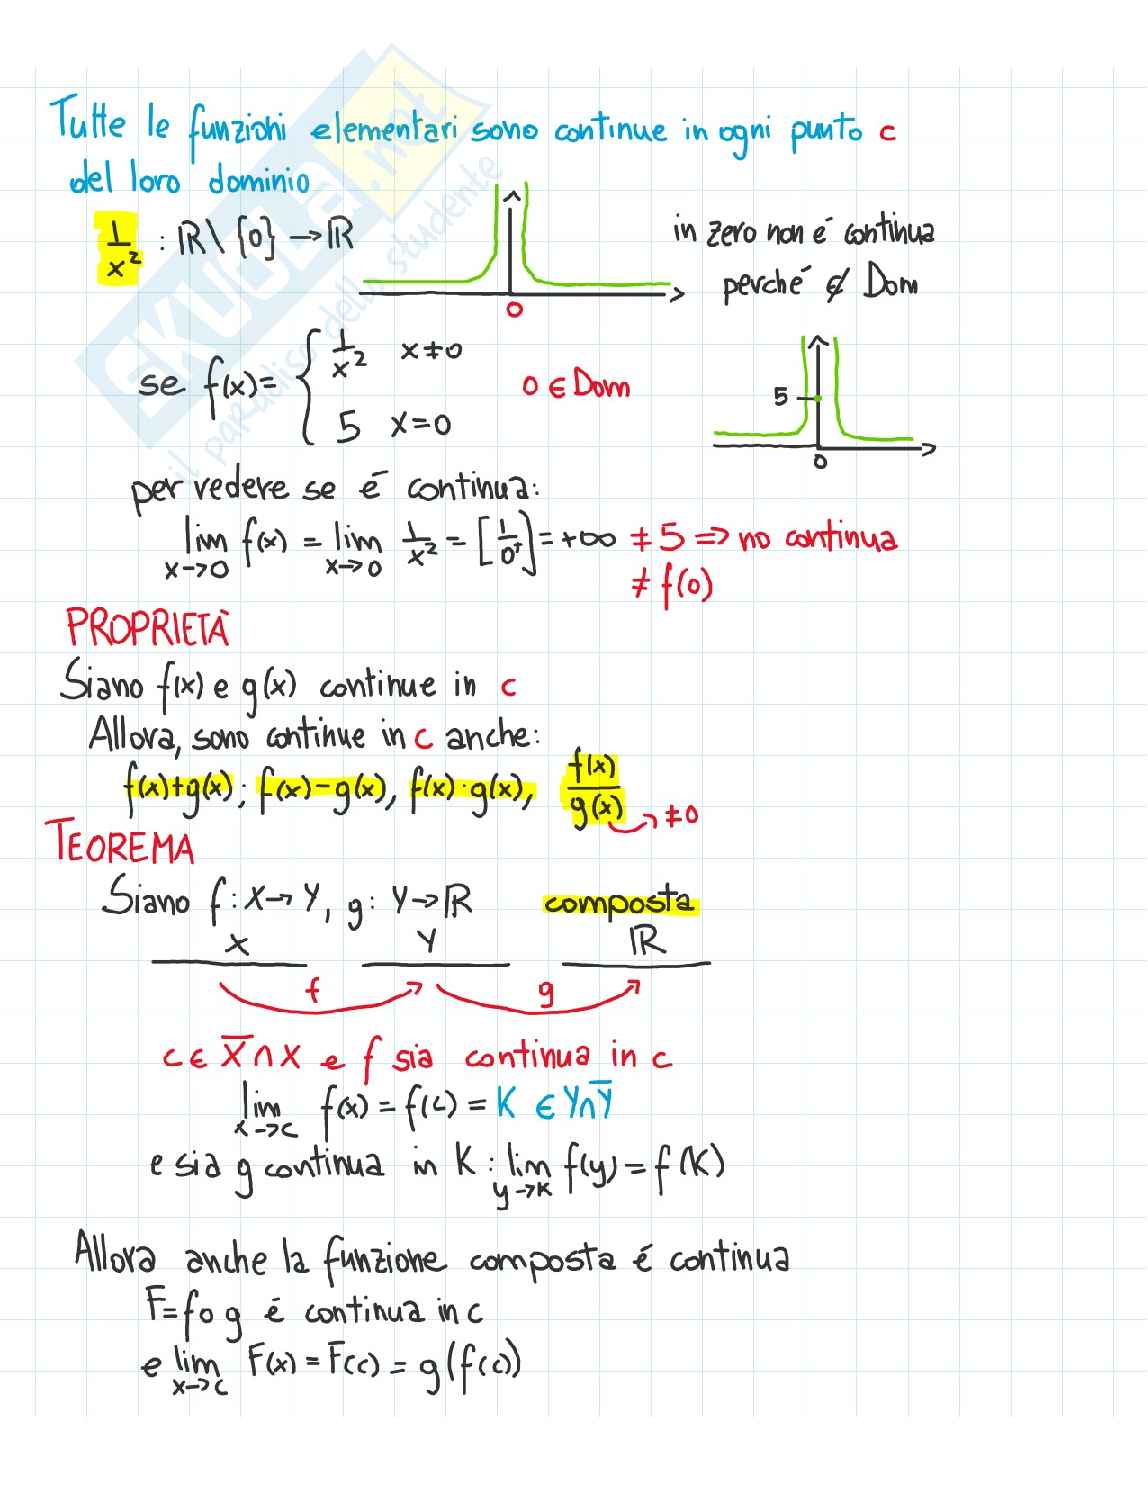 Tutte le funzioni elementari sono continue in ogni punto c
del loro dominio
1/x² : ℝ\{0}→ℝ
0
in zero non é continua
perché ∉ Dom
se f(x)= { 1/x² x≠0
5 x=0
0 ∈ Dom
5
0
per vedere se é continua:
lim x→0 f(x) = lim x→0 1/x² = [1/0⁺] = +∞ ≠ 5 => no continua
≠ f(0)
PROPRIETÀ
Siano f(x) e g(x) continue in c
Allora, sono continue in c anche:
f(x)+g(x); f(x)-g(x), f(x)·g(x), f(x)/g(x) → ≠0
TEOREMA
Siano f: X→Y, g: Y→ℝ composta
X Y ℝ
f g
c ∈ X̅∩X e f sia continua in c
lim x→c f(x) = f(c) = K ∈ Y∩Y̅
e sia g continua in K: lim y→K f(y) = f(K)
Allora anche la funzione composta é continua
F=f∘g é continua in c
e lim x→c F(x) = F(c) = g(f(c))
SKUOLA.net
il paradiso dello studente